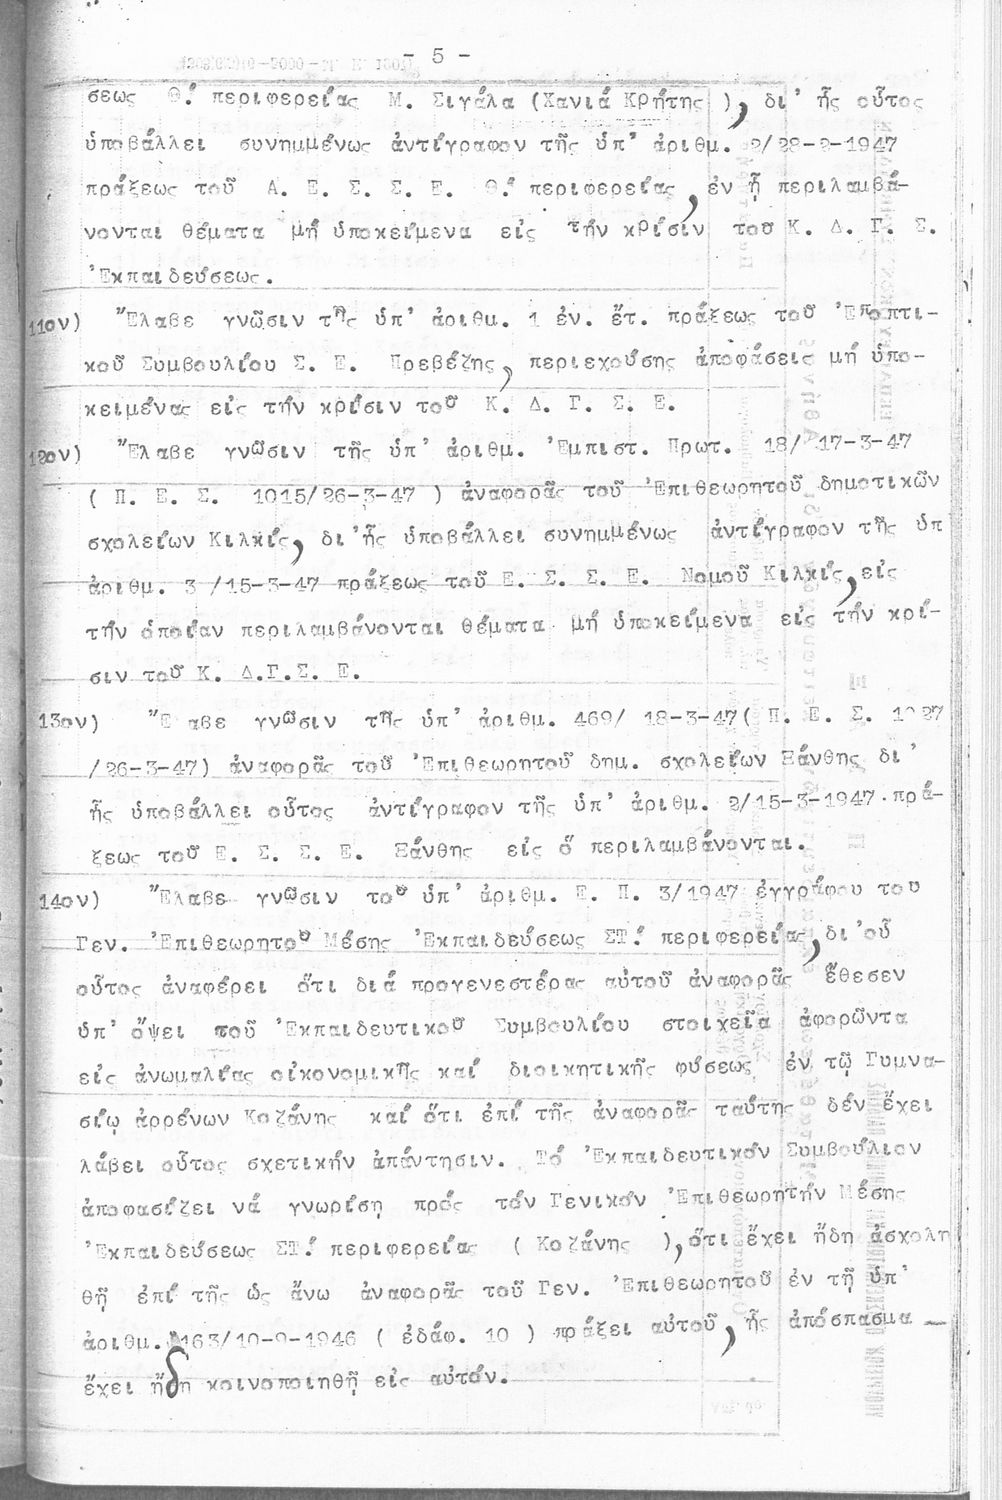 - 5 -
σεως Θ.΄ περιφερείας Μ. Σιγάλα (Χανιά Κρήτης ), δι' ἧς οὗτος
ὑποβάλλει συνημμένως ἀντίγραφον τῆς ὑπ' ἀριθμ. 2/28-2-1947
πράξεως τοῦ Α. Ε. Σ. Σ. Ε. Θ.΄ περιφερείας, ἐν ᾗ περιλαμβά-
νονται θέματα μή ὑποκείμενα εἰς τήν κρίσιν τοῦ Κ. Δ. Γ. Σ.
'Εκπαιδεύσεως.
11ον) "Ελαβε γνῶσιν τῆς ὑπ' ἀριθμ. 1 ἐν. ἔτ. πράξεως τοῦ 'Εποπτι-
κοῦ Συμβουλίου Σ. Ε. Πρεβέζης, περιεχούσης ἀποφάσεις μή ὑπο-
κειμένας εἰς τήν κρίσιν τοῦ Κ. Δ. Γ. Σ. Ε.
12ον) "Ελαβε γνῶσιν τῆς ὑπ' ἀριθμ. 'Εμπιστ. Πρωτ. 18/ 17-3-47
( Π. Ε. Σ. 1015/26-3-47 ) ἀναφορᾶς τοῦ 'Επιθεωρητοῦ δημοτικῶν
σχολείων Κιλκίς, δι'ἧς ὑποβάλλει συνημμένως ἀντίγραφον τῆς ὑπ'
ἀριθμ. 3 /15-3-47 πράξεως τοῦ Ε. Σ. Σ. Ε. Νομοῦ Κιλκίς, εἰς
τήν ὁποίαν περιλαμβάνονται θέματα μή ὑποκείμενα εἰς τήν κρί-
σιν τοῦ Κ. Δ.Γ.Σ. Ε.
13ον) "Ε αβε γνῶσιν τῆς ὑπ' ἀριθμ. 469/ 18-3-47( Π. Ε. Σ. 1027
/26-3-47) ἀναφορᾶς τοῦ 'Επιθεωρητοῦ δημ. σχολείων Ξάνθης δι'
ἧς ὑποβάλλει οὗτος ἀντίγραφον τῆς ὑπ' ἀριθμ. 2/15-3-1947 πρά-
ξεως τοῦ Ε. Σ. Σ. Ε. Ξάνθης εἰς ὅ περιλαμβάνονται.
14ον) "Ελαβε γνῶσιν τοῦ ὑπ' ἀριθμ. Ε. Π. 3/1947 ἐγγράφου του
Γεν. 'Επιθεωρητοῦ Μέσης 'Εκπαιδεύσεως ΣΤ.΄ περιφερείας, δι'οὗ
οὗτος ἀναφέρει ὅτι διά προγενεστέρας αὐτοῦ ἀναφορᾶς ἔθεσεν
ὑπ' ὄψει τοῦ 'Εκπαιδευτικοῦ Συμβουλίου στοιχεῖα ἀφορῶντα
εἰς ἀνωμαλίας οἰκονομικῆς καί διοικητικῆς φύσεως ἐν τῷ Γυμνα-
σίῳ ἀρρένων Κοζάνης καί ὅτι ἐπί τῆς ἀναφορᾶς ταύτης δέν ἔχει
λάβει οὗτος σχετικήν ἀπάντησιν. Τό 'Εκπαιδευτικόν Συμβούλιον
ἀποφασίζει νά γνωρίσῃ πρός τόν Γενικόν 'Επιθεωρητήν Μέσης
'Εκπαιδεύσεως ΣΤ.΄ περιφερείας ( Κοζάνης ), ὅτι ἔχει ἤδη ἀσχολη
θῆ ἐπί τῆς ὡς ἄνω ἀναφορᾶς τοῦ Γεν. 'Επιθεωρητοῦ ἐν τῇ ὑπ'
ἀριθμ. 163/10-9-1946 ( ἐδάφ. 10 ) πράξει αὐτοῦ, ἧς ἀπόσπασμα
ἔχει ἤδη κοινοποιηθῆ εἰς αὐτόν.